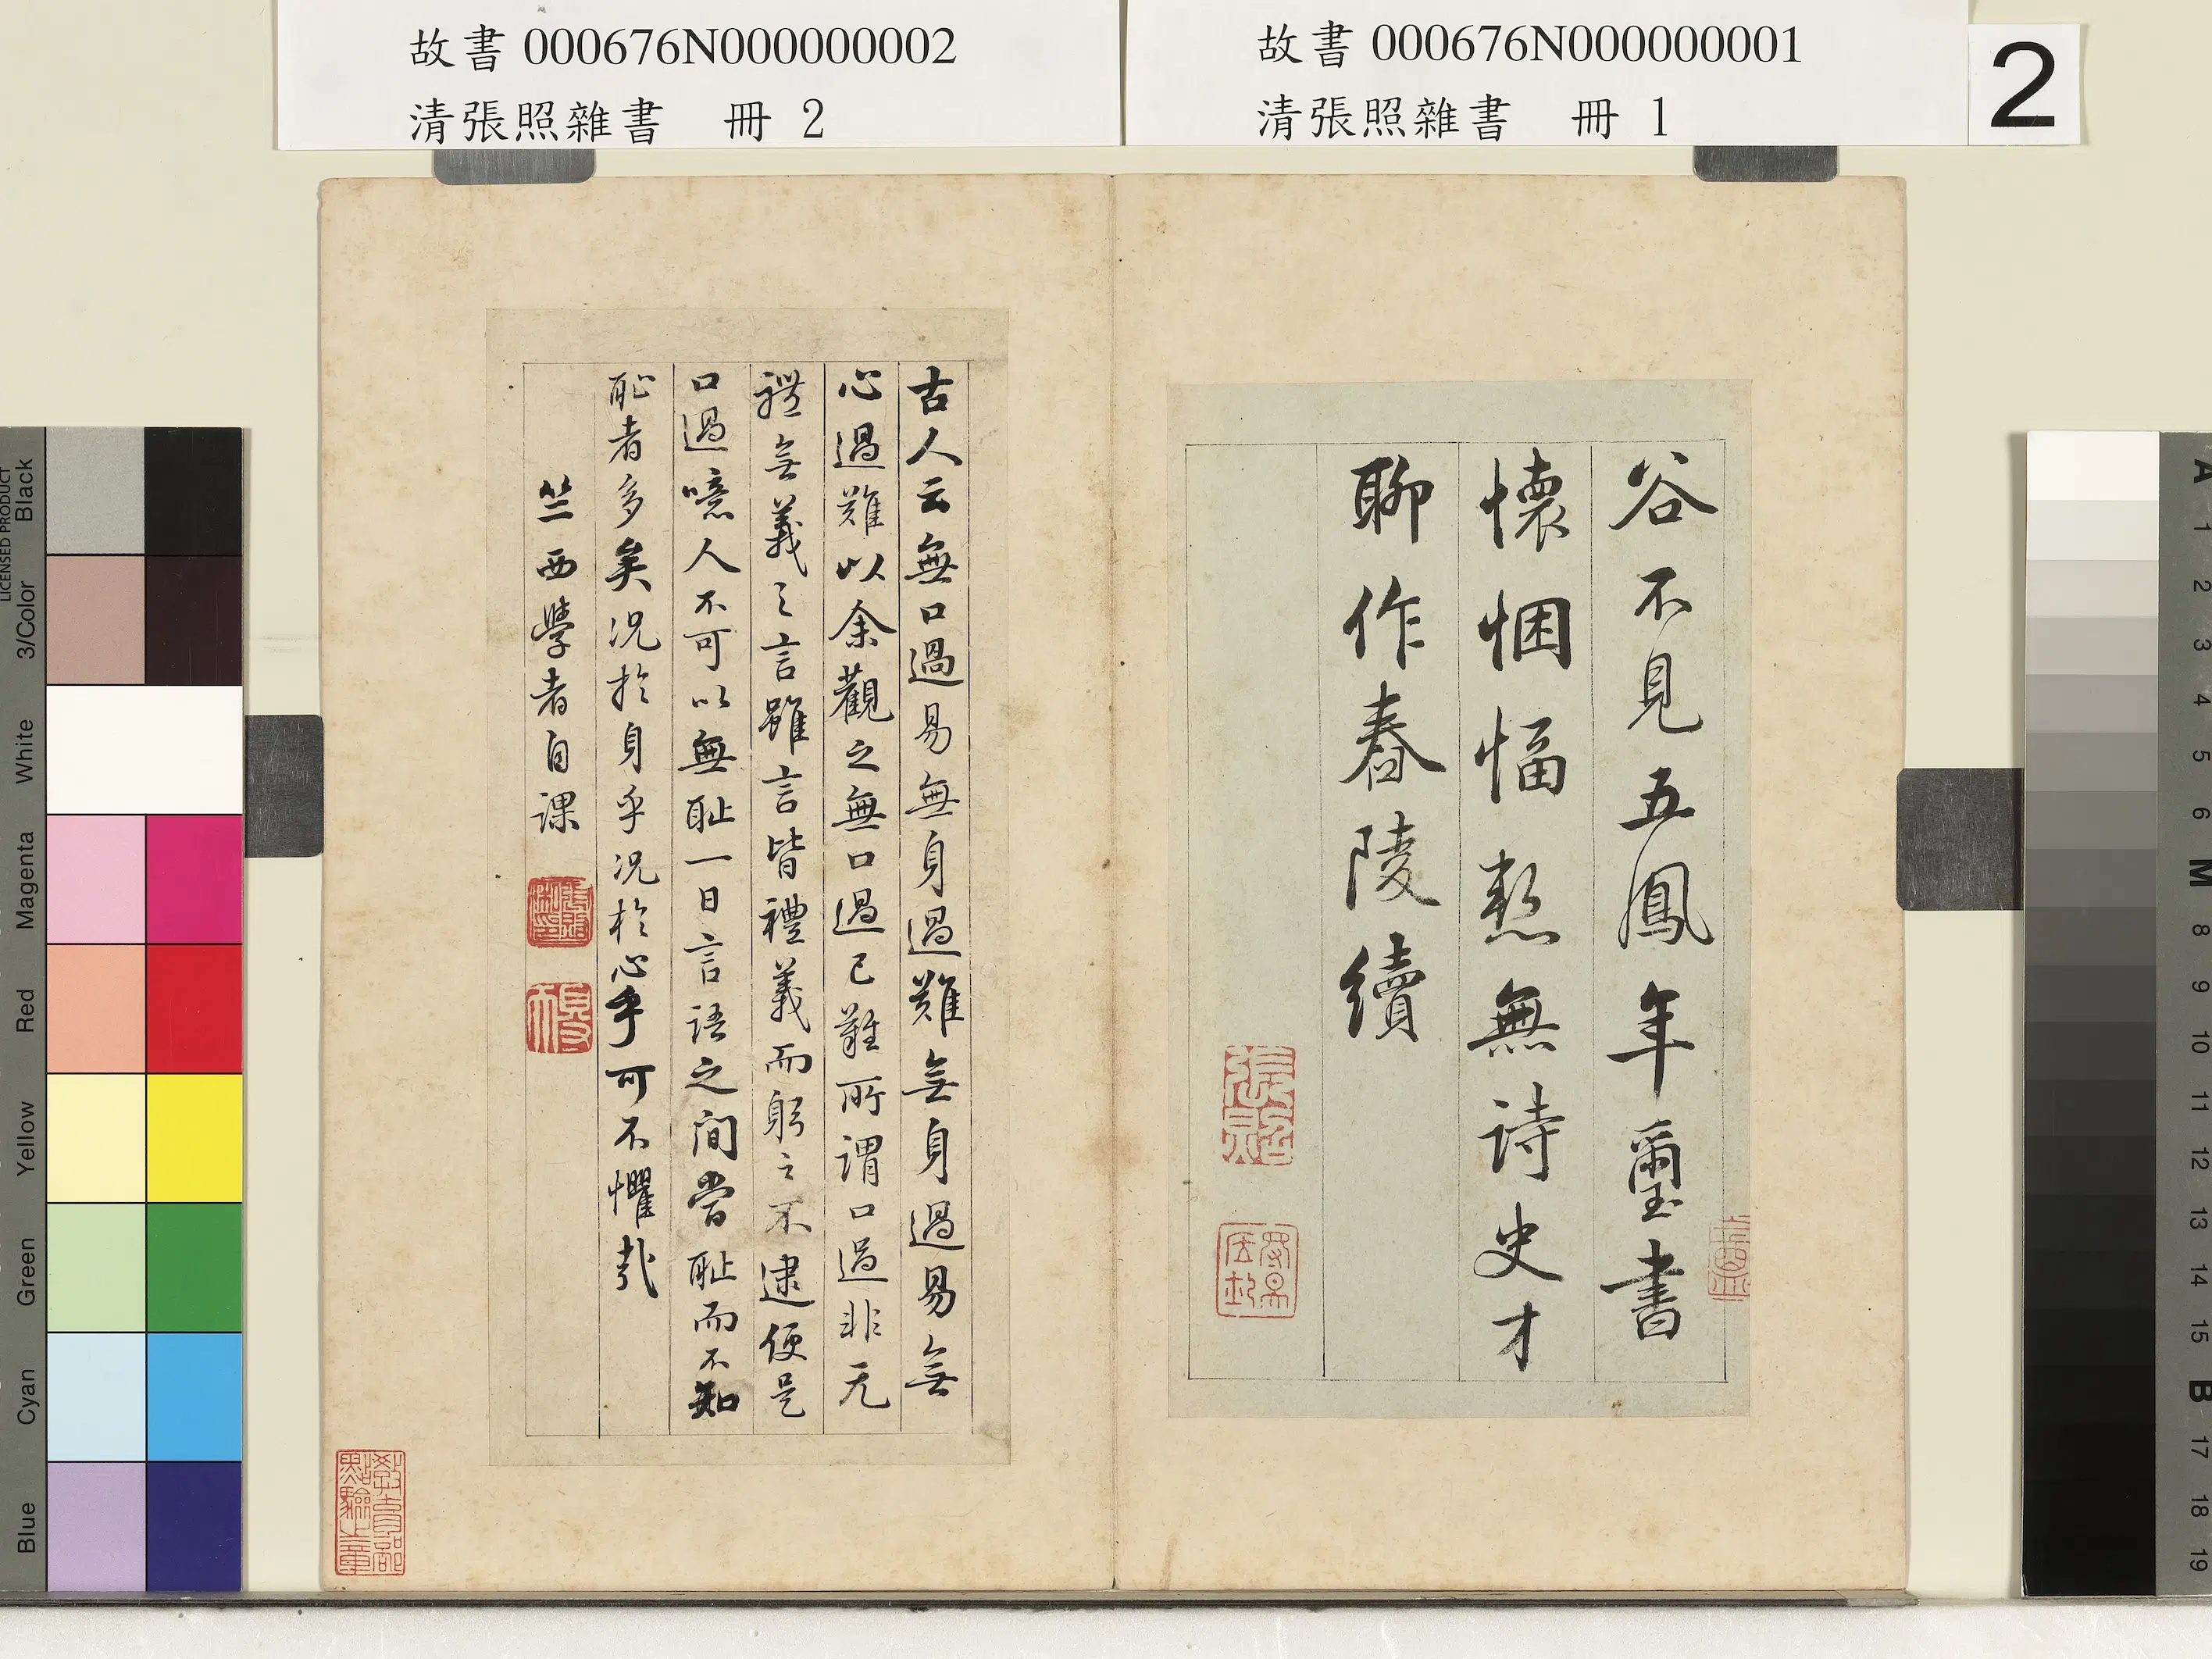 故書 000676N000000001
清張照雜書　冊 1
2
故書 000676N000000002
清張照雜書　冊 2
谷不見五鳳年璽書
懷悃愊慙無詩史才
聊作舂陵續
張照
古人云無口過易無身過難無身過易無
心過難以余觀之無口過已難所謂口過非无
禮無義之言雖言皆禮義而躬之不逮便是
口過噫人不可以無恥一日言語之間當恥而不知
恥者多矣況於身乎況於心乎可不懼哉
竺西學者自課
張照私印
得天
教育部點驗之章
LICENSED PRODUCT
Black
3/Color
White
Magenta
Red
Yellow
Green
Cyan
Blue
A
1
2
3
4
5
6
M
8
9
10
11
12
13
14
15
B
17
18
19